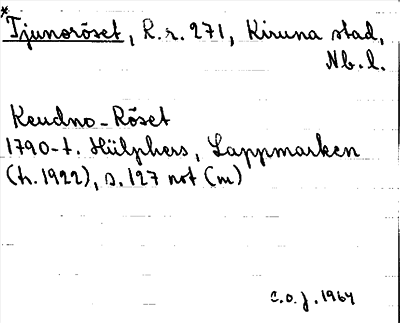 *Tjunoröset, R.r. 271, Kiruna stad,
Nb.l.
Keudno-Röset
1790-t. Hülphers, Lappmarken
(h. 1922), s. 127 not (m)
C.O.J. 1964